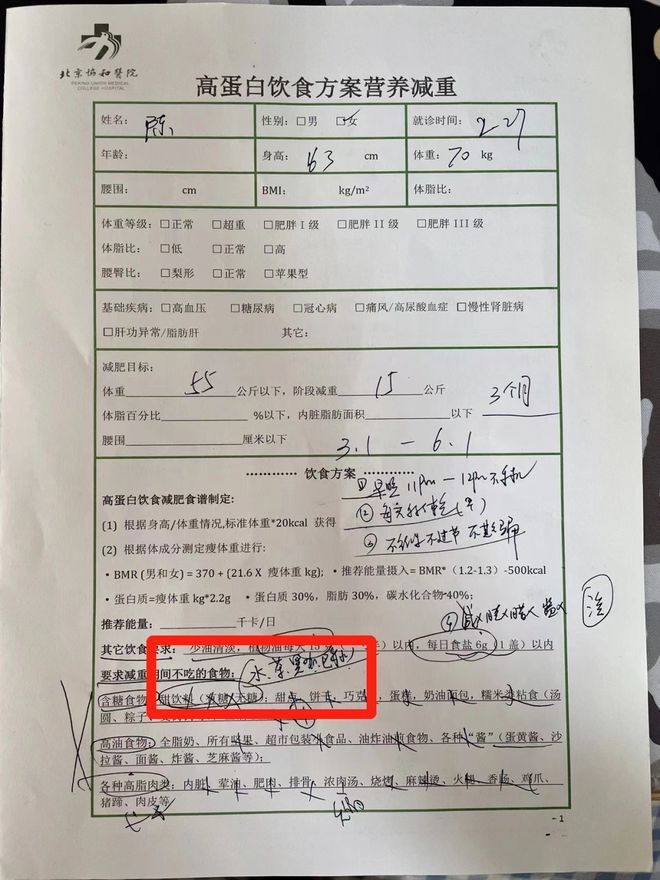 北京协和医院
PEKING UNION MEDICAL
COLLEGE HOSPITAL
高蛋白饮食方案营养减重
姓名: 陈 性别: □男 □女 就诊时间: 2.27
年龄: 身高: 163 cm 体重: 70 kg
腰围: cm BMI: kg/m² 体脂比:
体重等级: □正常 □超重 □肥胖 I 级 □肥胖 II 级 □肥胖 III 级
体脂比: □低 □正常 □高
腰臀比: □梨形 □正常 □苹果型
基础疾病: □高血压 □糖尿病 □冠心病 □痛风/高尿酸血症 □慢性肾脏病
□肝功异常/脂肪肝 其它:
减肥目标:
体重 55 公斤以下, 阶段减重 15 公斤 3个月
体脂百分比 %以下, 内脏脂肪面积 以下
腰围 厘米以下 3.1 — 6.1
············ 饮食方案 ············
① 早睡 11pm — 12pm 不手机
高蛋白饮食减肥食谱制定:
② 每天
(1) 根据身高/体重情况,标准体重*20kcal 获得
③ 不 不过节 不
(2) 根据体成分测定瘦体重进行:
· BMR (男和女) = 370 + (21.6 X 瘦体重 kg); · 推荐能量摄入= BMR* (1.2-1.3) -500kcal
· 蛋白质=瘦体重 kg*2.2g · 蛋白质 30%, 脂肪 30%, 碳水化合物 40%;
④
推荐能量: 千卡/日
其它饮食要求: 少油清淡, 植物油每天 15 以内, 每日食盐 6g (1 盖) 以内
要求减重期间不吃的食物: 水、茶、黑咖
含糖食物: 甜饮料 甜点、饼干、巧克 、蛋糕、奶油面包、糯米类粘食 (汤
圆、粽子
高油食物: 全脂奶、所有坚果、超市包装 食品、油炸油煎食物、各种“酱” (蛋黄酱、沙
拉酱、面酱、炸酱、芝麻酱等);
各种高脂肉类: 内脏、荤油、肥肉、排骨、浓肉汤、烧烤、麻辣烫、火腿、香肠、鸡爪、
猪蹄、肉皮等
- 1